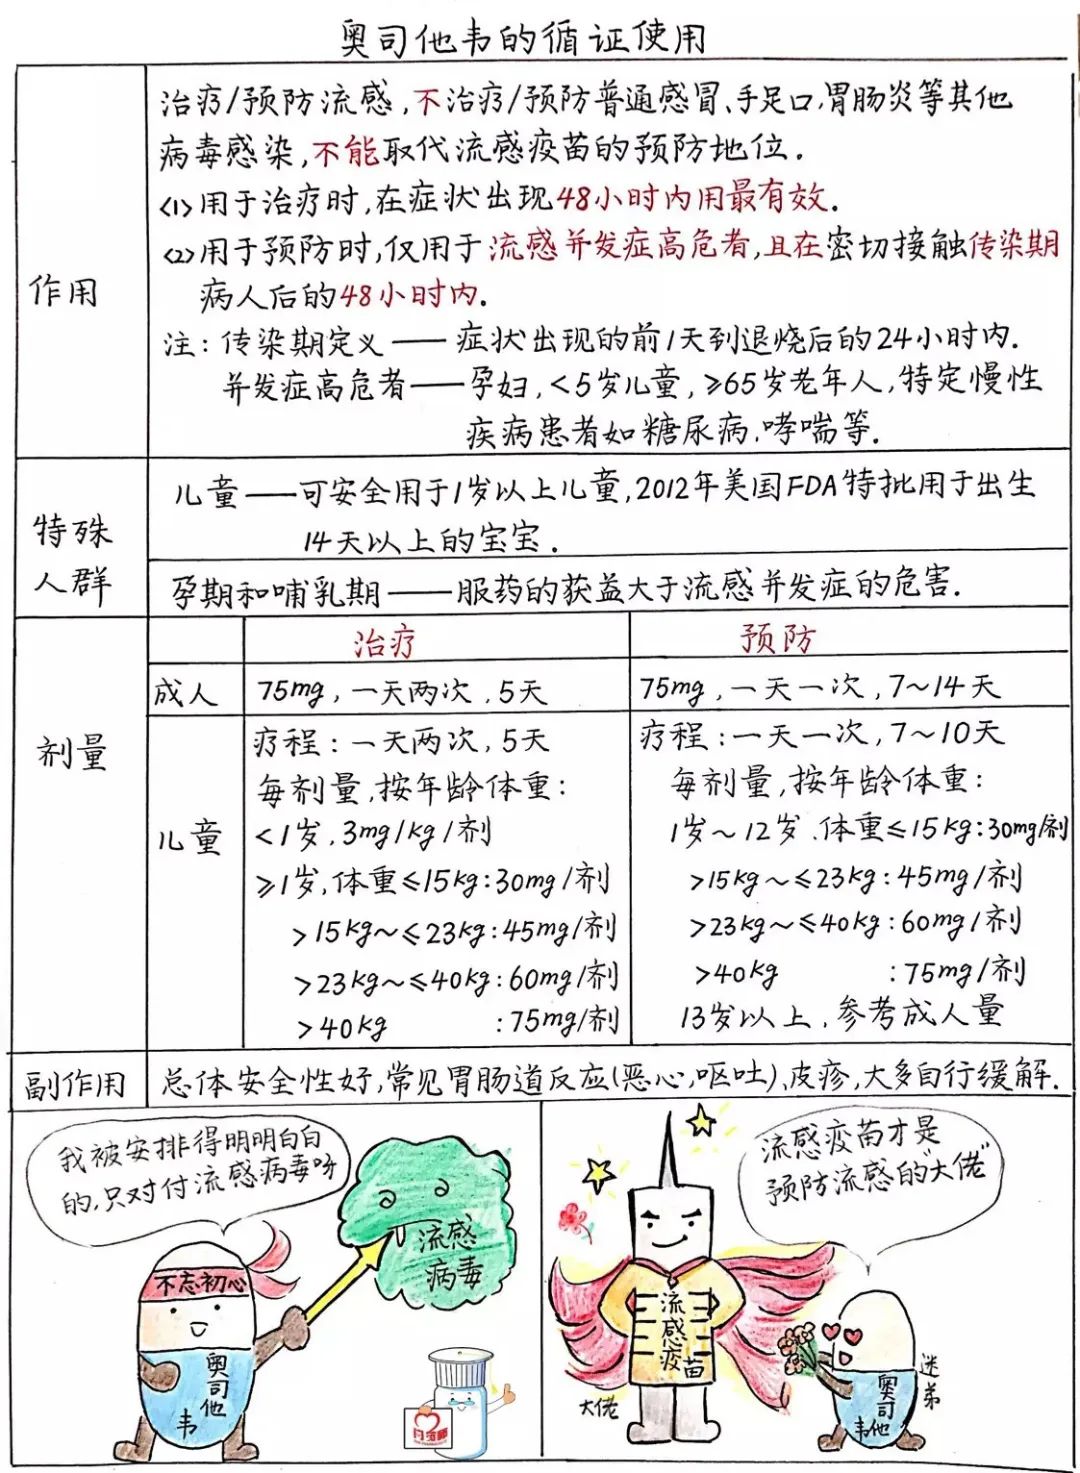 奥司他韦的循证使用
作用
治疗/预防流感,不治疗/预防普通感冒、手足口、胃肠炎等其他
病毒感染,不能取代流感疫苗的预防地位.
<1>用于治疗时,在症状出现48小时内用最有效.
<2>用于预防时,仅用于流感并发症高危者,且在密切接触传染期
病人后的48小时内.
注:传染期定义——症状出现的前1天到退烧后的24小时内.
并发症高危者——孕妇,<5岁儿童,≥65岁老年人,特定慢性
疾病患者如糖尿病、哮喘等.
特殊
人群
儿童——可安全用于1岁以上儿童,2012年美国FDA特批用于出生
14天以上的宝宝.
孕期和哺乳期——服药的获益大于流感并发症的危害.
剂量
治疗
预防
成人
75mg,一天两次,5天
75mg,一天一次,7~14天
儿童
疗程:一天两次,5天
每剂量,按年龄体重:
<1岁,3mg/kg/剂
≥1岁,体重≤15kg:30mg/剂
>15kg~≤23kg:45mg/剂
>23kg~≤40kg:60mg/剂
>40kg :75mg/剂
疗程:一天一次,7~10天
每剂量,按年龄体重:
1岁~12岁、体重≤15kg:30mg/剂
>15kg~≤23kg:45mg/剂
>23kg~≤40kg:60mg/剂
>40kg :75mg/剂
13岁以上,参考成人量
副作用
总体安全性好,常见胃肠道反应(恶心,呕吐)、皮疹,大多自行缓解.
我被安排得明明白白
的,只对付流感病毒呀
流感
病毒
不忘初心
奥司他韦
流感疫苗才是
预防流感的"大佬"
流感疫苗
大佬
迷弟
奥司他韦